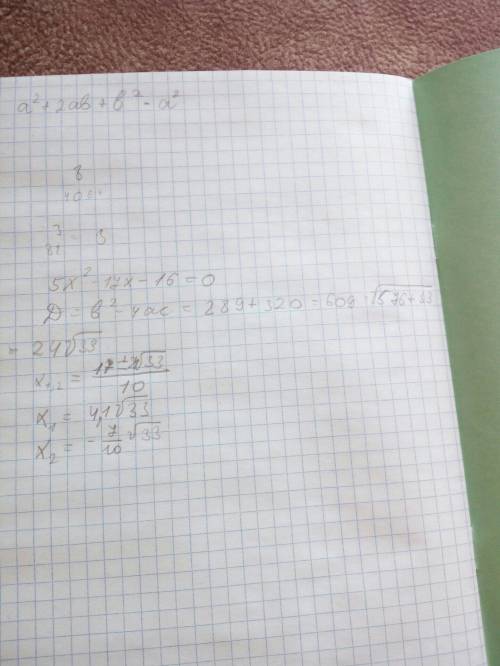 a² + 2ab + b² - a²
8
3
5x² - 17x - 16 = 0
D = b² - 4ac = 289 + 320 = 609 √576+33
= 24√33
x₁,₂ = 17 ± 24√33 / 10
x₁ = 4,1√33
x₂ = - 7/10 √33